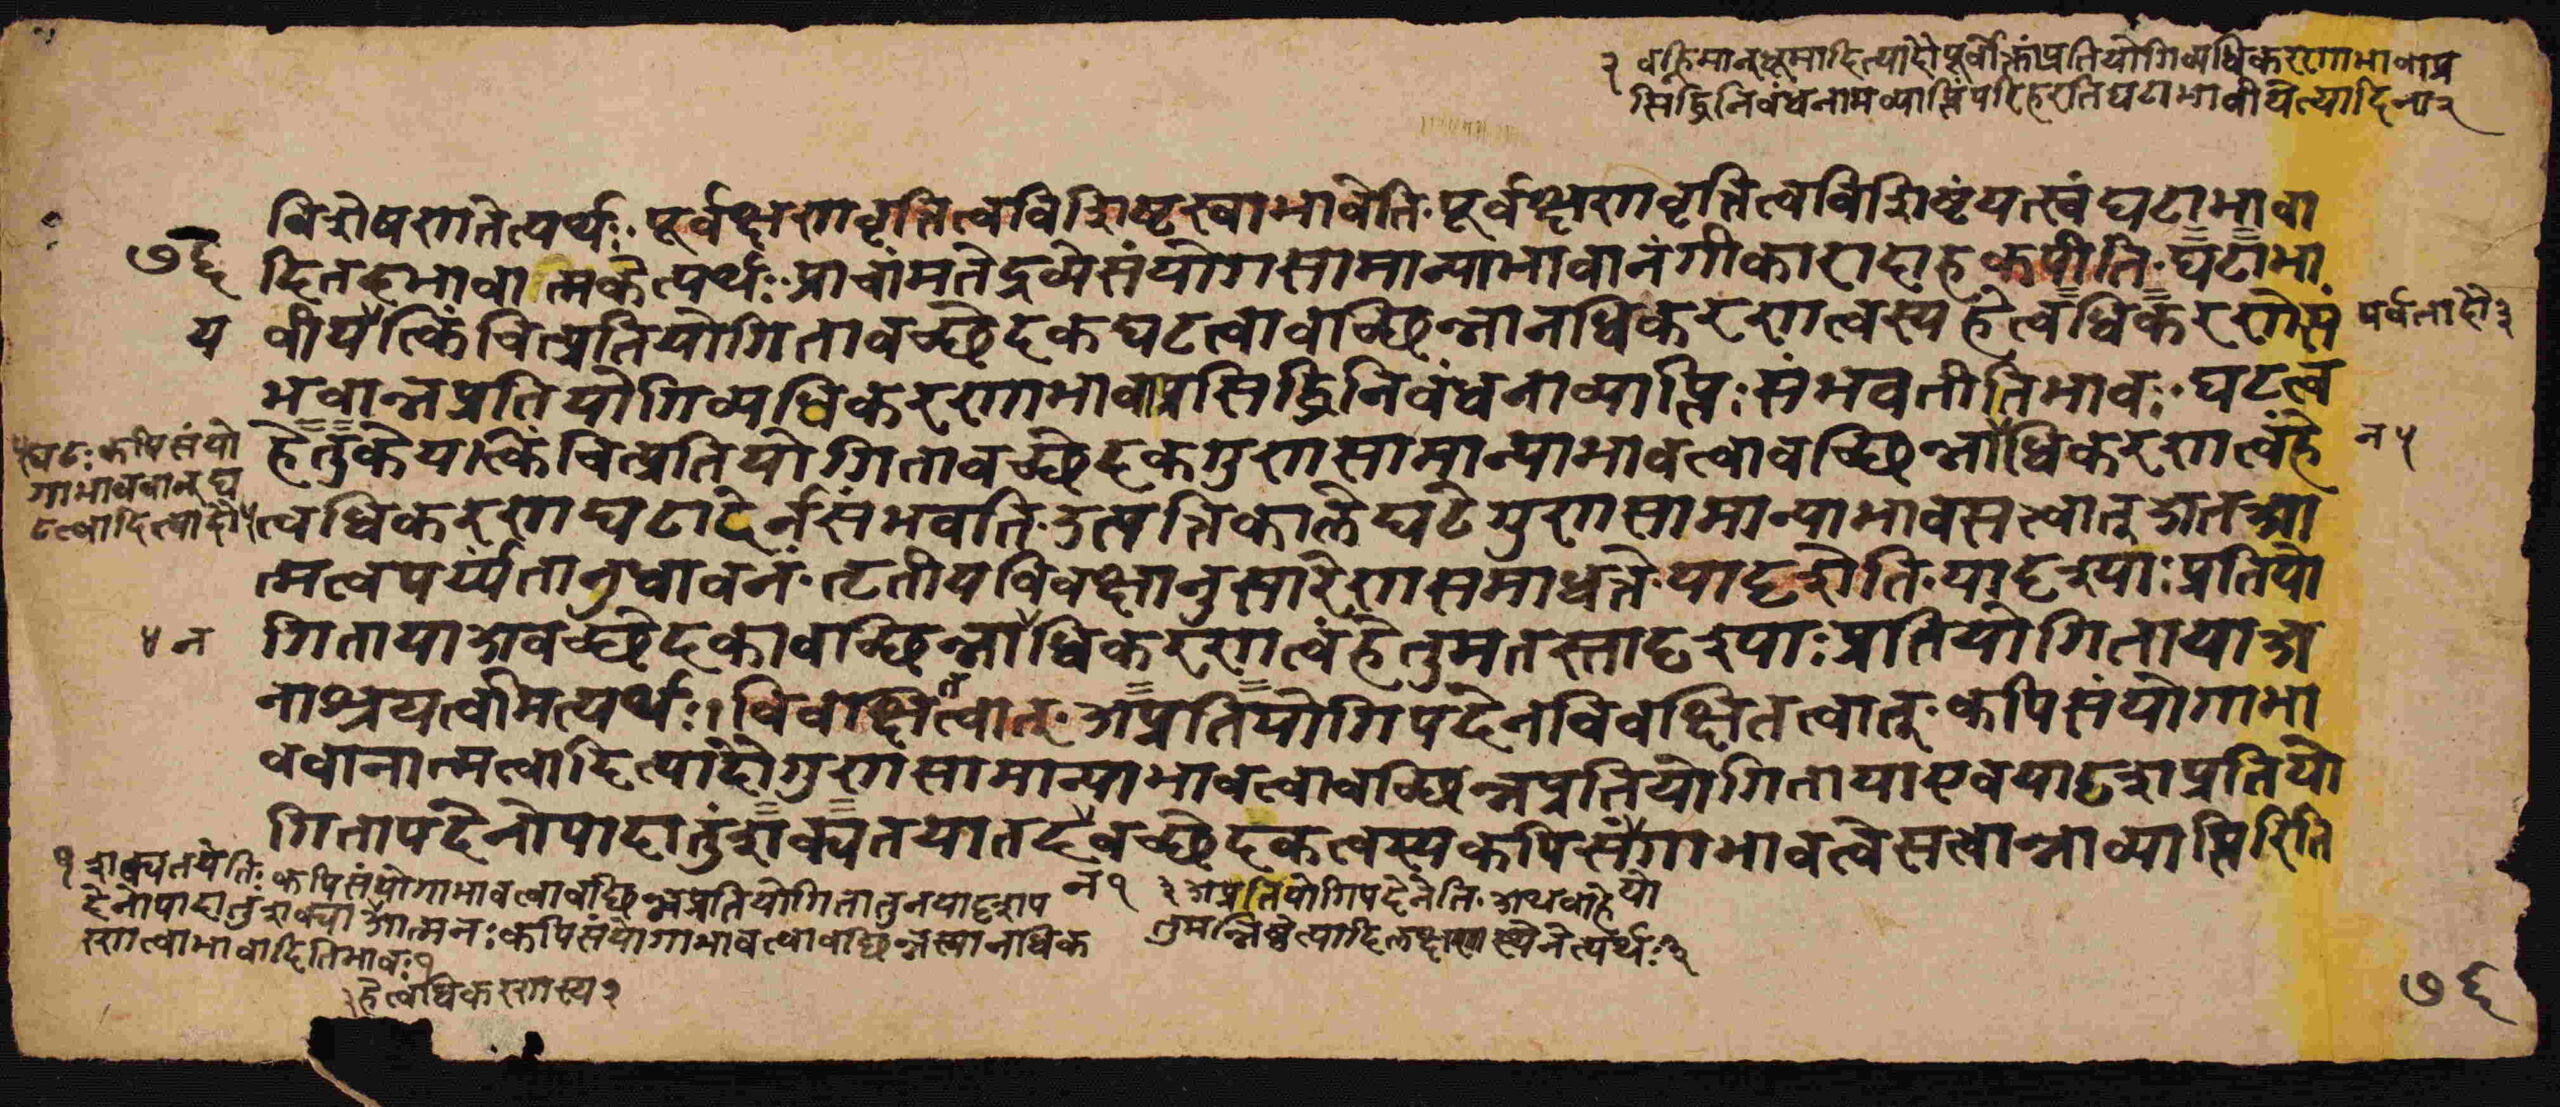 २ वह्निमान्धूमादित्यादौपूर्वोक्तांप्रतियोगिव्यधिकरणाभावाप्र
सिद्धिनिबंधनामव्याप्तिंपरिहरतिघटाभावीयेत्यादिना२
विशेषणतेत्यर्थः॰पूर्वक्षणवृत्तित्वविशिष्टस्वाभावेति॰पूर्वक्षणवृत्तित्वविशिष्टंयत्स्वंघटाभावा
७६
दितदभावात्मकेत्यर्थः॰प्राचांमतेद्रव्येसंयोगसामान्याभावानंगीकारादाहकपीति॰घटाभा
य
वीययत्किंचित्प्रतियोगितावच्छेदकघटत्वावच्छिन्नानधिकरणत्वस्यहेत्वधिकरणेसं
पर्वतादौ३
भवान्नप्रतियोगिव्यधिकरणाभावाप्रसिद्धिनिबंधनाव्याप्तिःसंभवतीतिभावः॰घटत्व
५घटःकपिसंयो
गाभाववान्घ
टत्वादित्यादौ५
हेतुकेयत्किंचित्प्रतियोगितावच्छेदकगुणसामान्याभावत्वावच्छिन्नाधिकरणत्वंहे
न५
त्वधिकरणघटादेर्नसंभवति॰उत्पत्तिकालेघटेगुणसामान्याभावसत्वात्अतआ
त्मत्वपर्य्यंतानुधावनं॰तृतीयविवक्षानुसारेणसमाधत्ते॰यादृशेति॰यादृश्याःप्रतियो
४न
गितायाअवच्छेदकावच्छिन्नाधिकरणत्वंहेतुमतस्तादृश्याःप्रतियोगितायाअ
नाश्रयत्वमित्यर्थः।विवक्षितत्वात्॰अप्रतियोगिपदेनविवक्षितत्वात्॰कपिसंयोगाभा
ववानात्मत्वादित्यादौगुणसामान्याभावत्वावच्छिन्नप्रतियोगितायाएवयादृशप्रतियो
गितापदेनोपादातुंशक्यतयातदवच्छेदकत्वस्यकपिसंगाभावत्वेसत्वान्नाव्याप्तिरिति
१शक्यतयेति॰कपिसंयोगाभावत्वावच्छिन्नप्रतियोगितातुनयादृशप
देनोपादातुंशक्याआत्मनःकपिसंयोगाभावत्वावच्छिन्नस्यानधिक
रणत्वाभावादितिभावः१
न१
३अप्रतियोगिपदेनेति॰अथवाहे
यो
तुमन्निष्ठेत्यादिलक्षणस्थेनेत्यर्थः३
२हेत्वधिकरणस्य२
७६